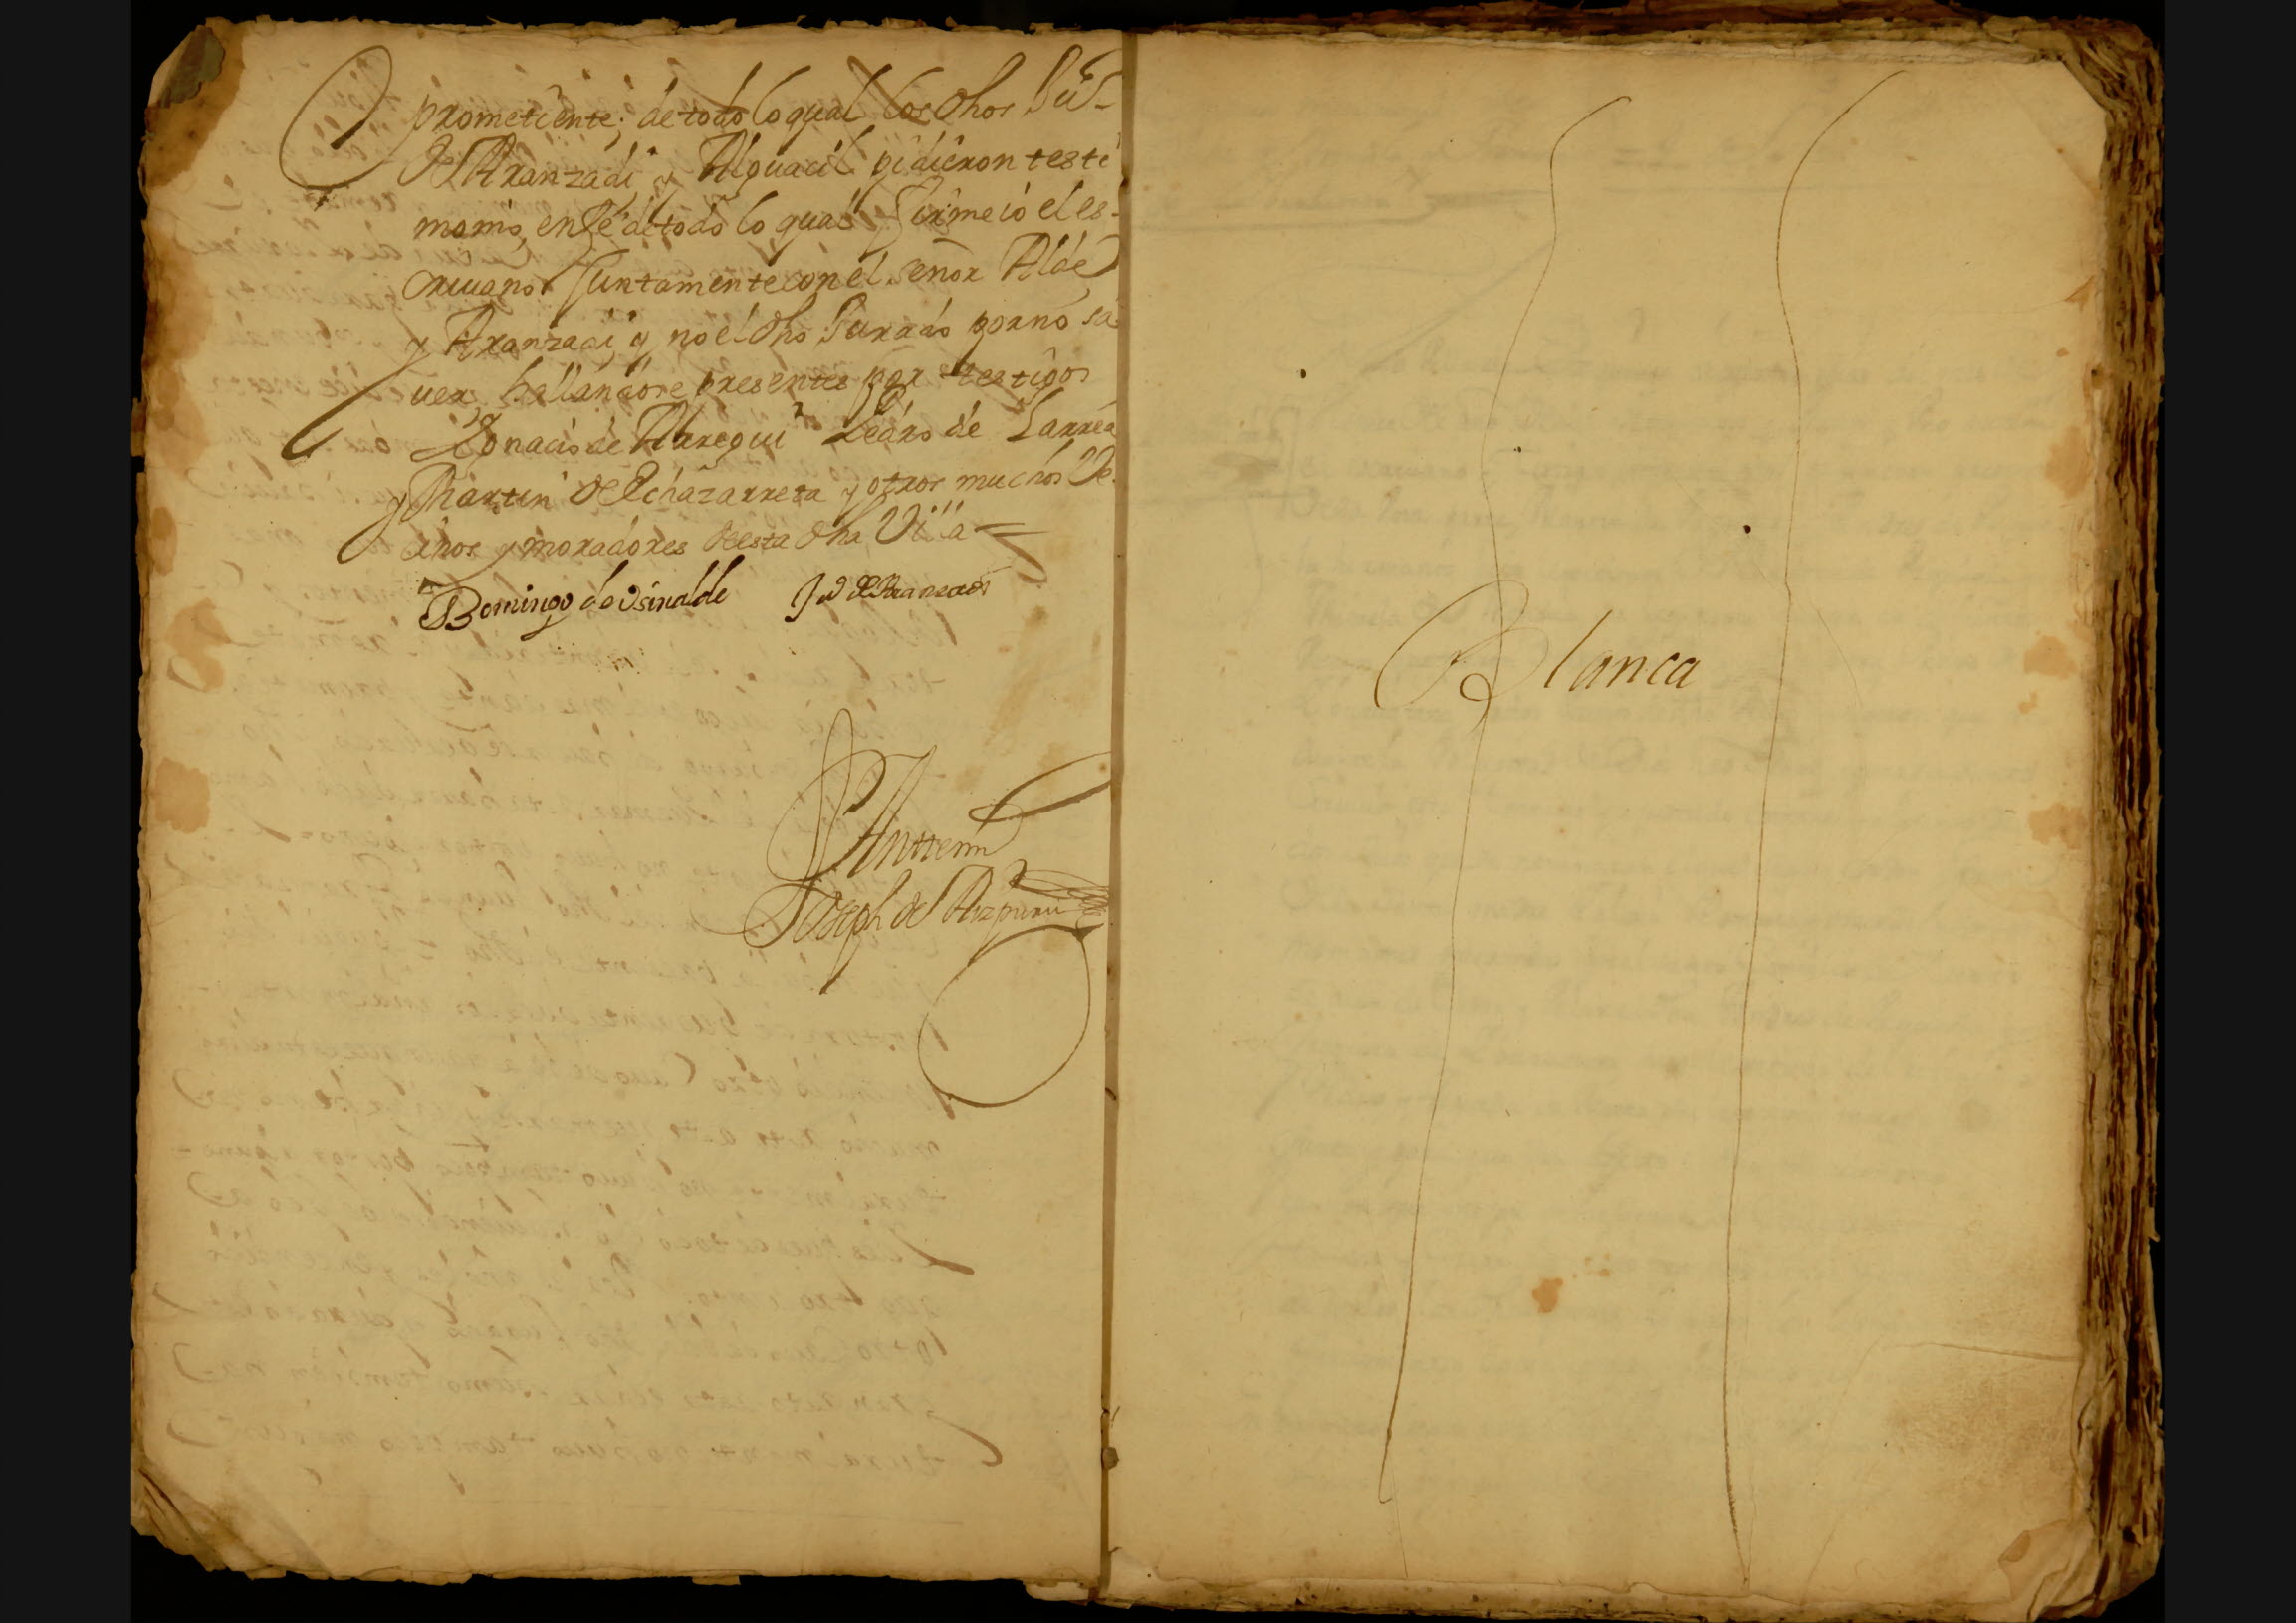 prometiente; de todo lo qual los dhos Ju-
de Aranzadi, y Alguacil pidieron testi
monio, en fe de todo lo qual firme io el es-
criuano Juntamente con el señor Alde
y Aranzadi, y no el dho Jurado por no sa
uer, hallandose presentes por testigos
Ignacio de Arregui Pedro de Larrea
y Martin de Echazarreta y otros muchos Ve-
cinos y moradores de esta dha Villa =
Domingo de Usinalde Ju de Aranzadi
Anttemi
Joseph de Aizpuru
Blanca